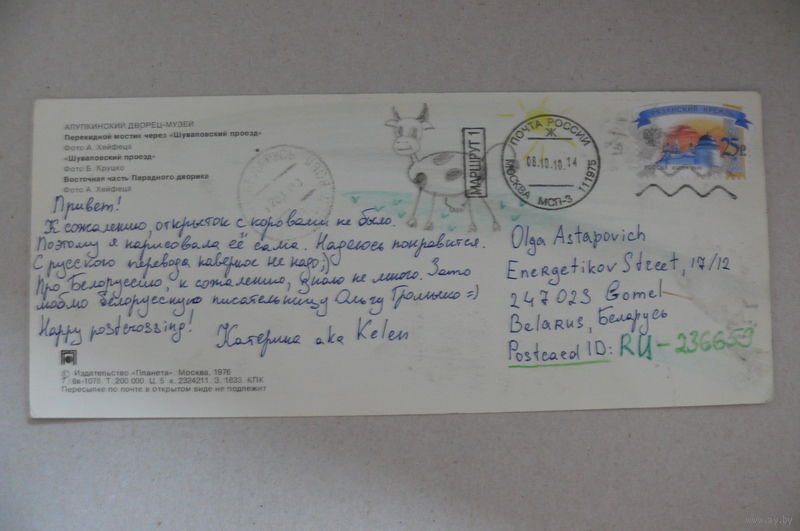 АЛУПКИНСКИЙ ДВОРЕЦ-МУЗЕЙ
Перекидной мостик через «Шуваловский проезд»
Фото А. Хейфеца
«Шуваловский проезд»
Фото Б. Круцко
Восточная часть Парадного дворика
Фото А. Хейфеца
Привет!
К сожалению, открыток с коровами не было.
Поэтому я нарисовала её сама. Надеюсь понравится.
С русского перевода наверное не надо;)
Про Белоруссию, к сожалению, знаю не много. Зато
люблю белорусскую писательницу Ольгу Громыко =)
Happy postcrossing!
Катерина aka Kelen
© Издательство «Планета». Москва. 1976
6в-1078. Т. 200 000. Ц. 5 к. 2324211. З. 1633. КПК
Пересылке по почте в открытом виде не подлежит
МАРШРУТ 1
ПОЧТА РОССИИ
Ж
08.10.10.14
МОСКВА МСП-3 111975
25р
Olga Astapovich
Energetikov Street, 17/12
247023 Gomel
Belarus, Беларусь
Postcard ID: RU-236659
www.ay.by